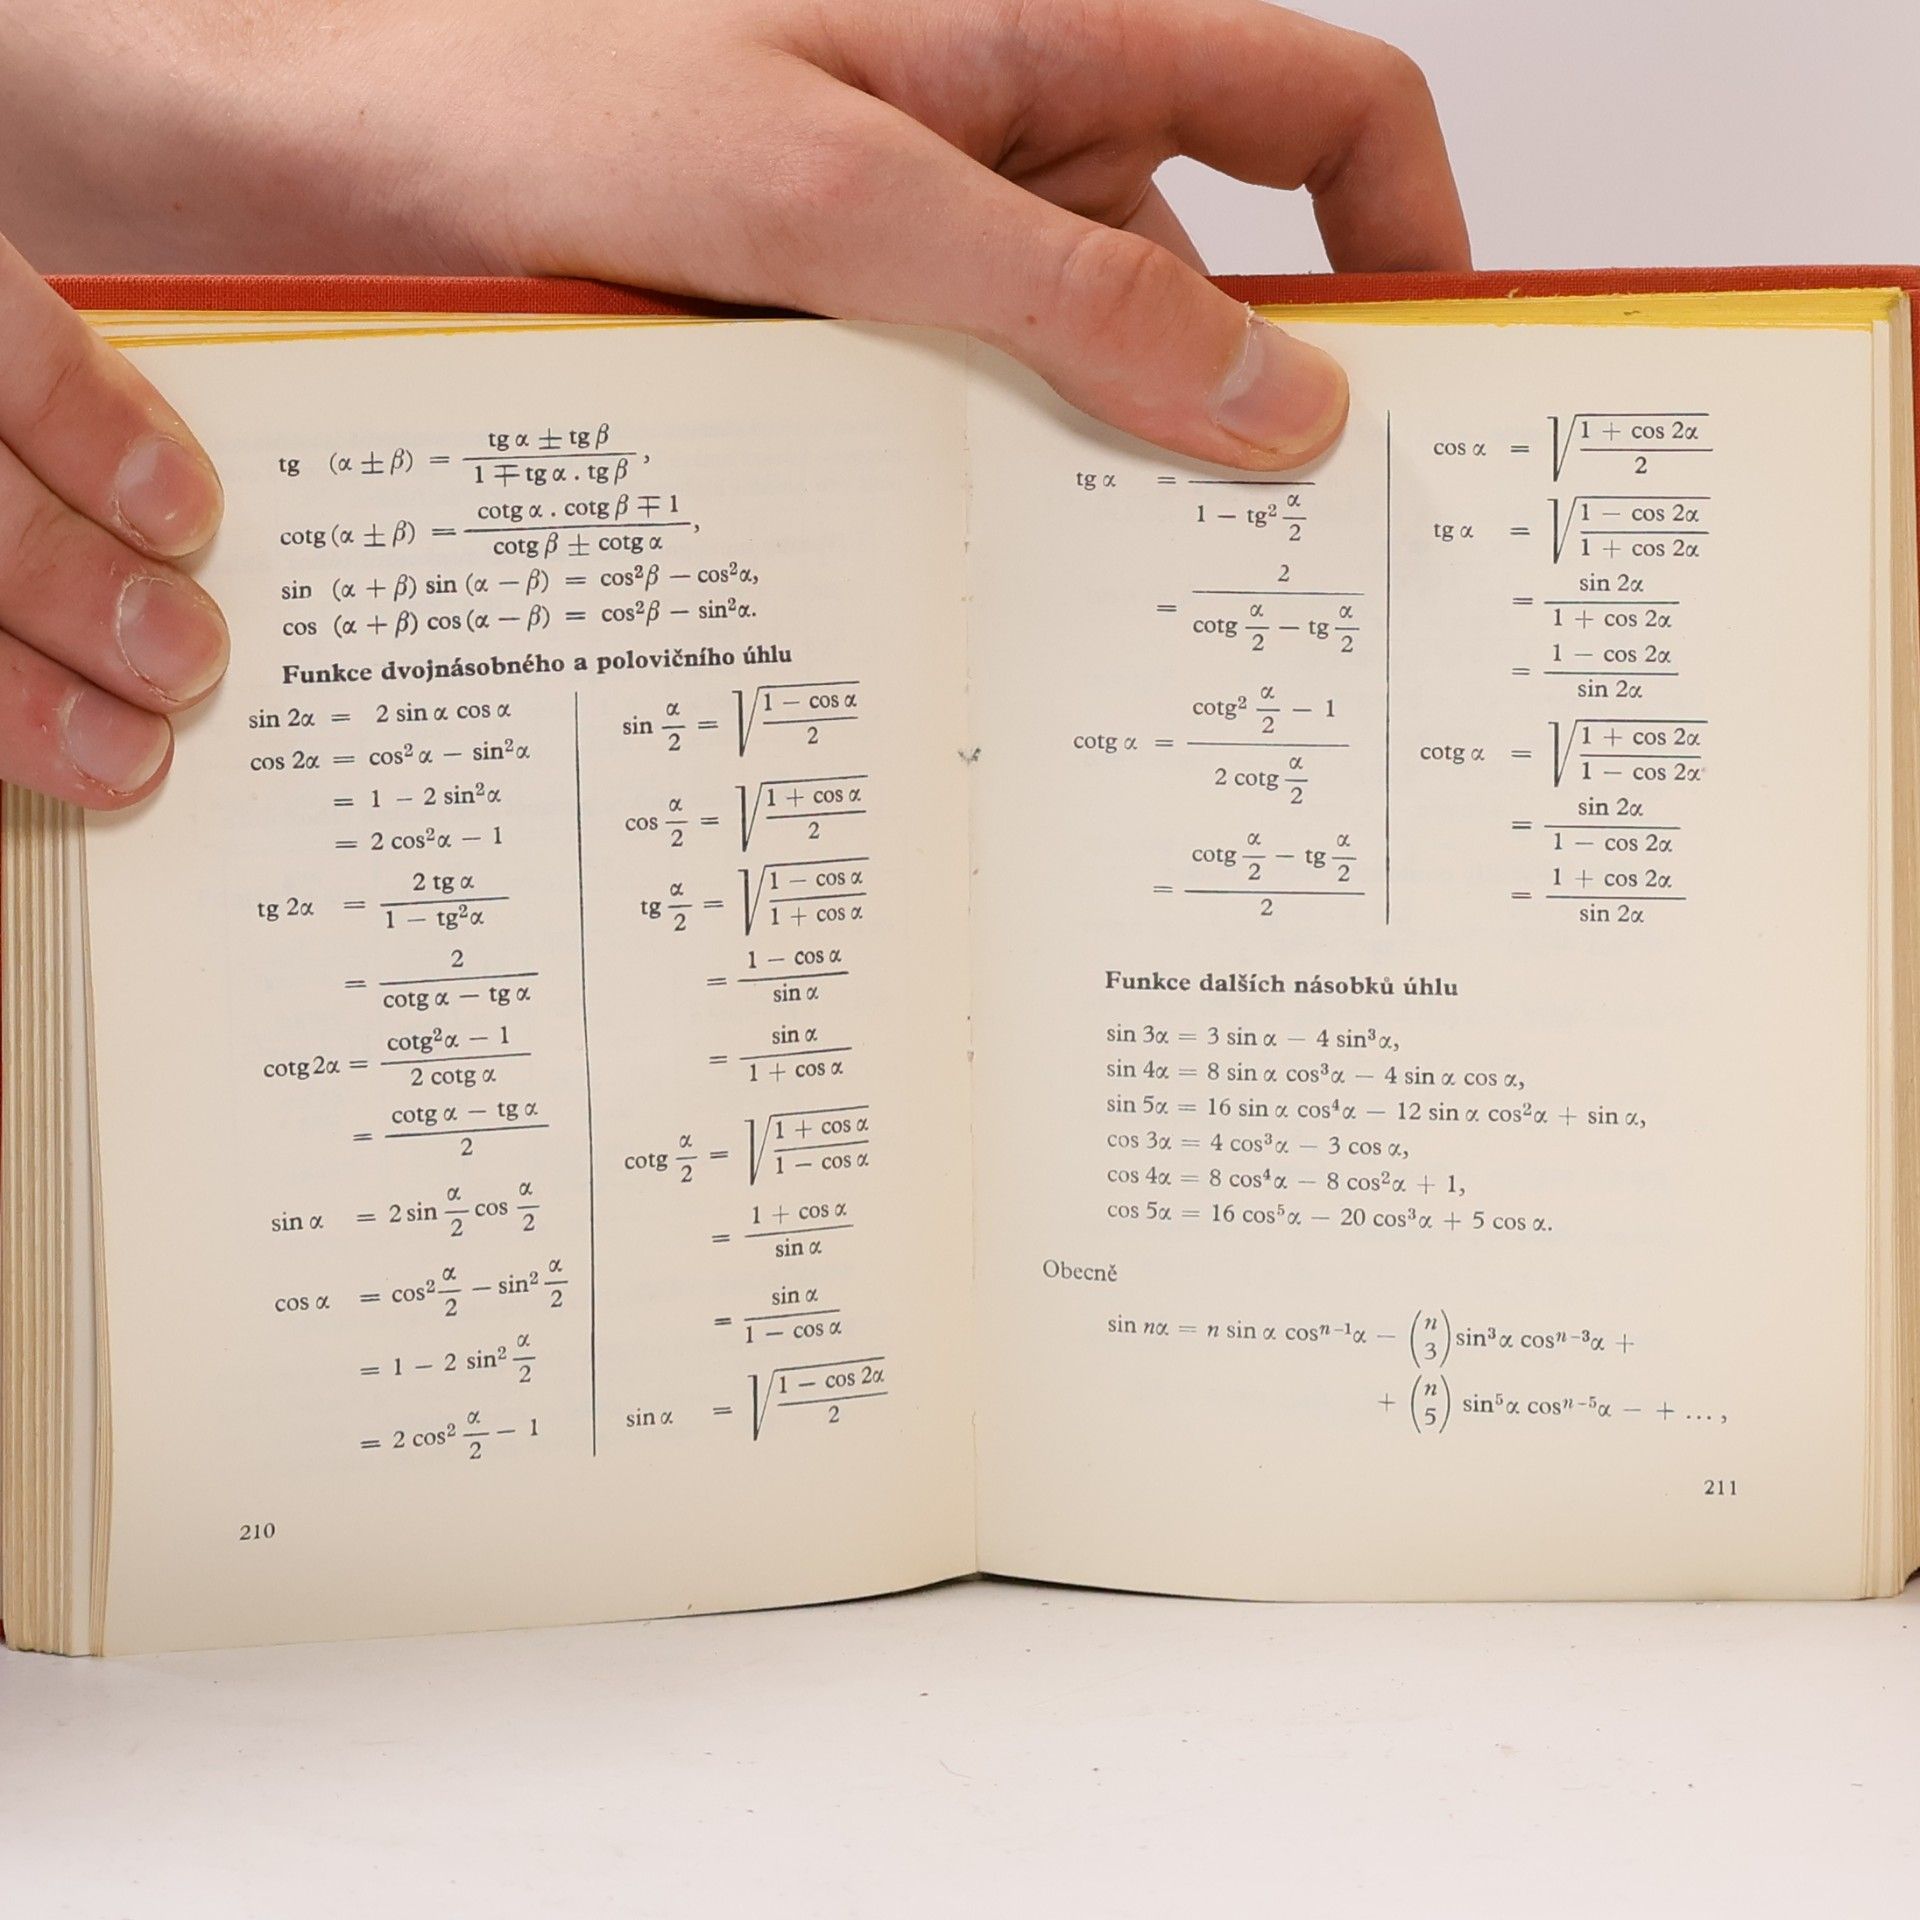 tg (α ± β) = (tg α ± tg β)/(1 ∓ tg α . tg β),
cotg (α ± β) = (cotg α . cotg β ∓ 1)/(cotg β ± cotg α),
sin (α + β) sin (α − β) = cos²β − cos²α,
cos (α + β) cos (α − β) = cos²β − sin²α.
Funkce dvojnásobného a polovičního úhlu
sin 2α = 2 sin α cos α
cos 2α = cos² α − sin²α
= 1 − 2 sin²α
= 2 cos²α − 1
tg 2α = (2 tg α)/(1 − tg²α)
= 2/(cotg α − tg α)
cotg 2α = (cotg²α − 1)/(2 cotg α)
= (cotg α − tg α)/2
sin α = 2 sin α/2 cos α/2
cos α = cos² α/2 − sin² α/2
= 1 − 2 sin² α/2
= 2 cos² α/2 − 1
sin α/2 = √((1 − cos α)/2)
cos α/2 = √((1 + cos α)/2)
tg α/2 = √((1 − cos α)/(1 + cos α))
= (1 − cos α)/(sin α)
= (sin α)/(1 + cos α)
cotg α/2 = √((1 + cos α)/(1 − cos α))
= (1 + cos α)/(sin α)
= (sin α)/(1 − cos α)
sin α = √((1 − cos 2α)/2)
210
tg α = /(1 − tg² α/2)
= 2/(cotg α/2 − tg α/2)
cotg α = (cotg² α/2 − 1)/(2 cotg α/2)
= (cotg α/2 − tg α/2)/2
cos α = √((1 + cos 2α)/2)
tg α = √((1 − cos 2α)/(1 + cos 2α))
= (sin 2α)/(1 + cos 2α)
= (1 − cos 2α)/(sin 2α)
cotg α = √((1 + cos 2α)/(1 − cos 2α))
= (sin 2α)/(1 − cos 2α)
= (1 + cos 2α)/(sin 2α)
Funkce dalších násobků úhlu
sin 3α = 3 sin α − 4 sin³α,
sin 4α = 8 sin α cos³α − 4 sin α cos α,
sin 5α = 16 sin α cos⁴α − 12 sin α cos²α + sin α,
cos 3α = 4 cos³α − 3 cos α,
cos 4α = 8 cos⁴α − 8 cos²α + 1,
cos 5α = 16 cos⁵α − 20 cos³α + 5 cos α.
Obecně
sin nα = n sin α cosⁿ⁻¹α − (n 3) sin³α cosⁿ⁻³α +
+ (n 5) sin⁵α cosⁿ⁻⁵α − + ... ,
211